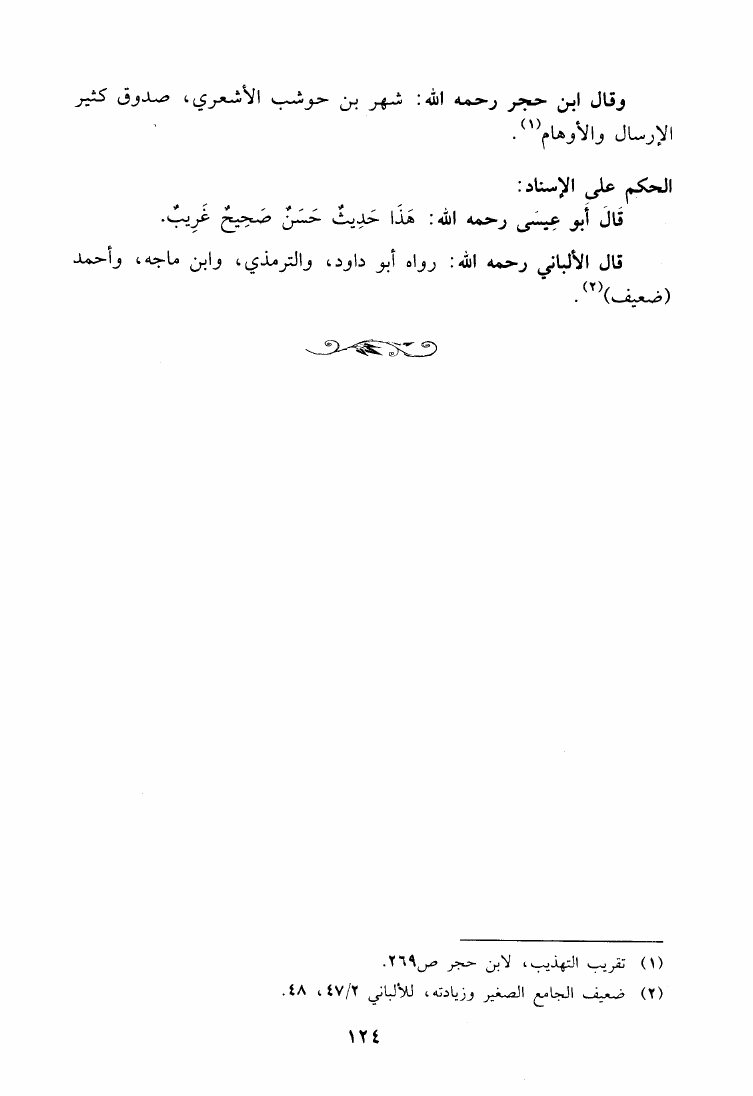 وقال ابن حجر رحمه الله: شهر بن حوشب الأشعري، صدوق كثير
الإرسال والأوهام(١).
الحكم على الإسناد:
قَالَ أَبو عِيسَى رحمه الله: هَذَا حَدِيثٌ حَسَنٌ صَحِيحٌ غَرِيبٌ.
قال الألباني رحمه الله: رواه أبو داود، والترمذي، وابن ماجه، وأحمد
(ضعيف)(٢).
(١) تقريب التهذيب، لابن حجر ص٢٦٩.
(٢) ضعيف الجامع الصغير وزيادته، للألباني ٤٧/٢، ٤٨.
١٢٤